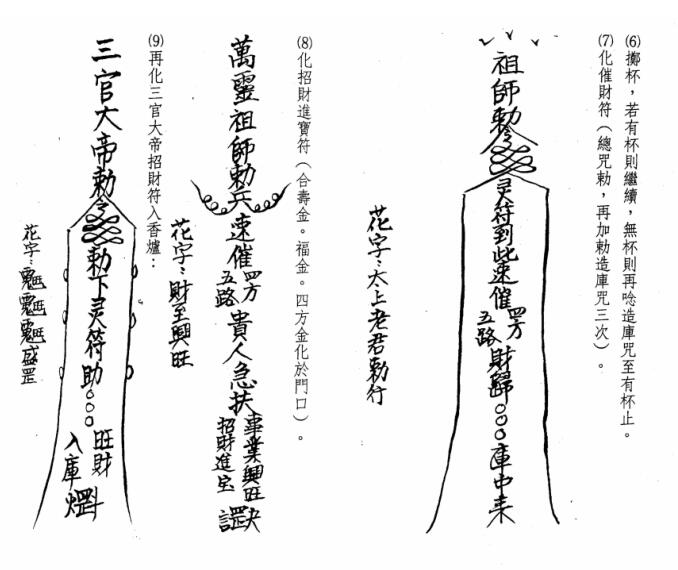 (6)擲杯，若有杯則繼續，無杯則再唸造庫咒至有杯止。
(7)化催財符（總咒勅，再加勅造庫咒三次）。
祖師勅令灵符到此速催四方五路財歸○○○庫中来
花字：太上老君勅行
(8)化招財進寶符（合壽金。福金。四方金化於門口）。
萬靈祖師勅兵速催四方五路貴人急扶事業興旺招財進宝
花字：財至興旺
(9)再化三官大帝招財符入香爐：
三官大帝勅令勅下灵符助○○○旺財入庫
花字：